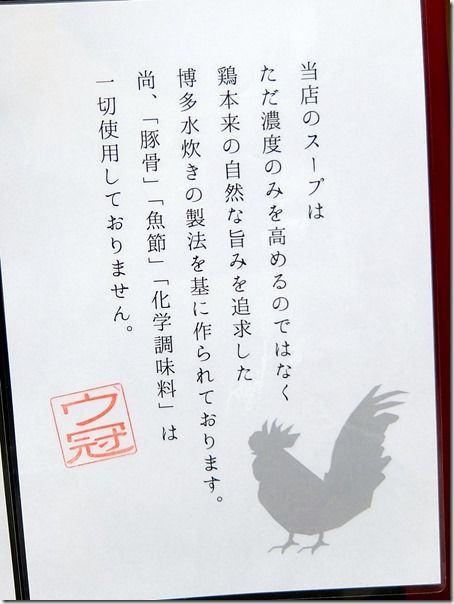 当店のスープは
ただ濃度のみを高めるのではなく
鶏本来の自然な旨みを追求した
博多水炊きの製法を基に作られております。
尚、「豚骨」「魚節」「化学調味料」は
一切使用しておりません。
ウ冠